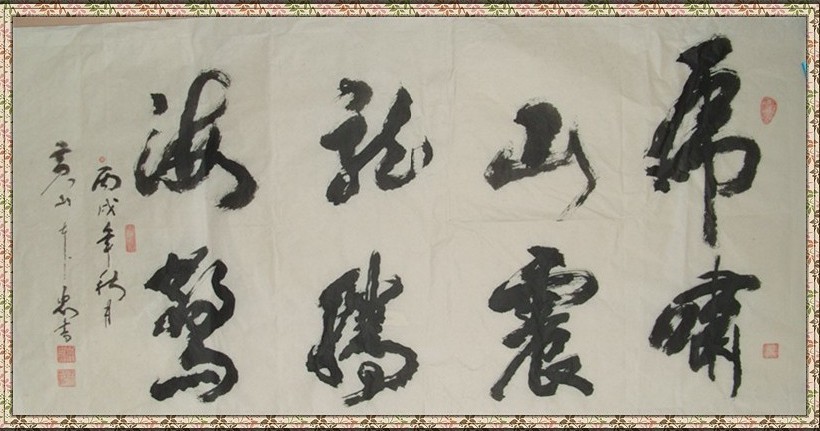 虎啸
山震
龙腾
海惊
丙戌年秋月
黄山
书